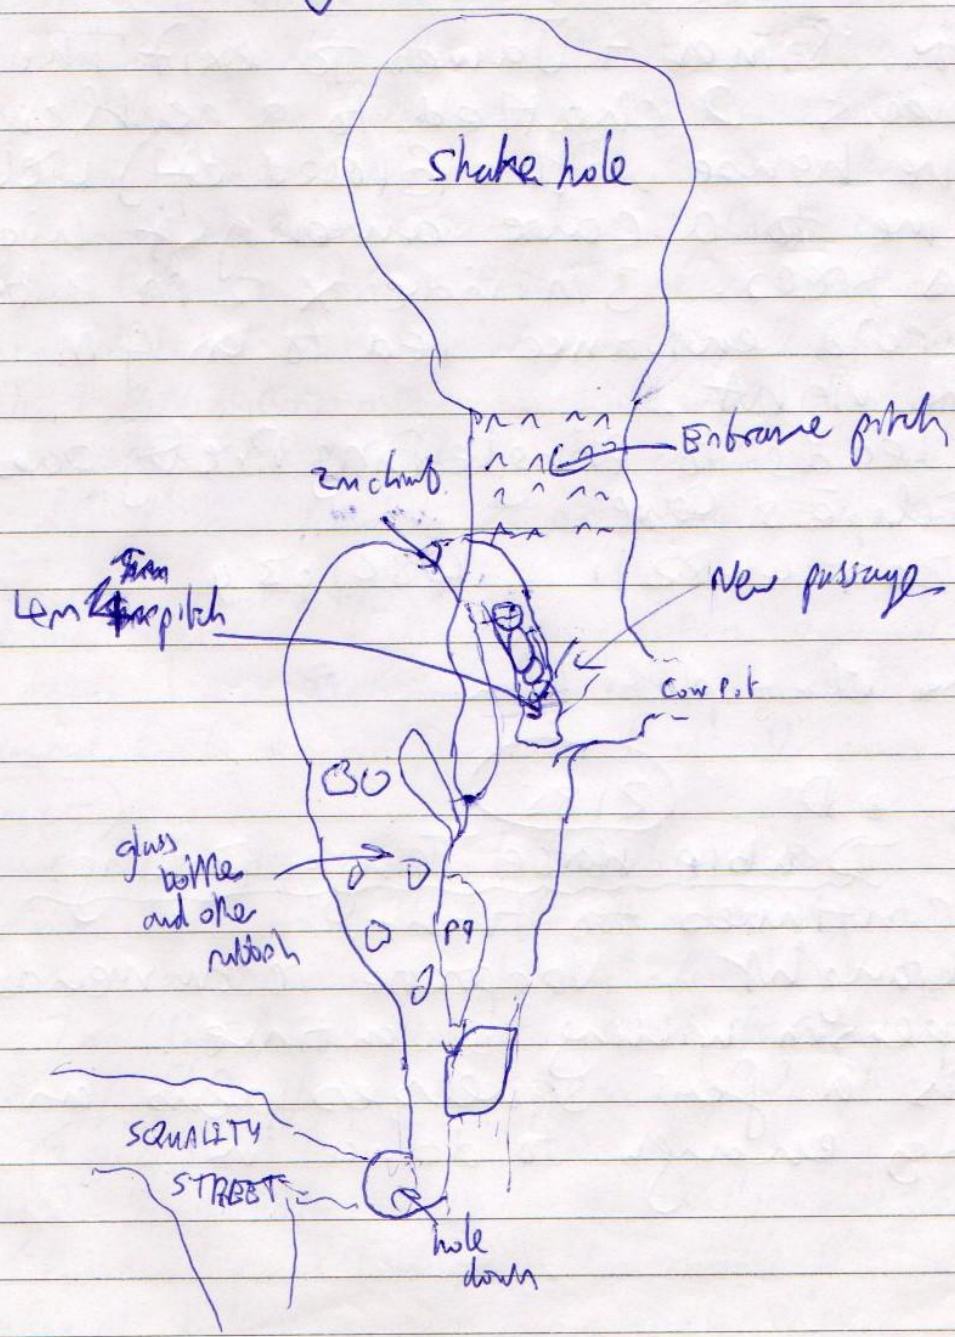 Shake hole
Entrance pitch
2m climb
New passage
pitch
Cow Pot
glass
bottles
and other
rubbish
P9
SQUALITY
STREET
hole
down